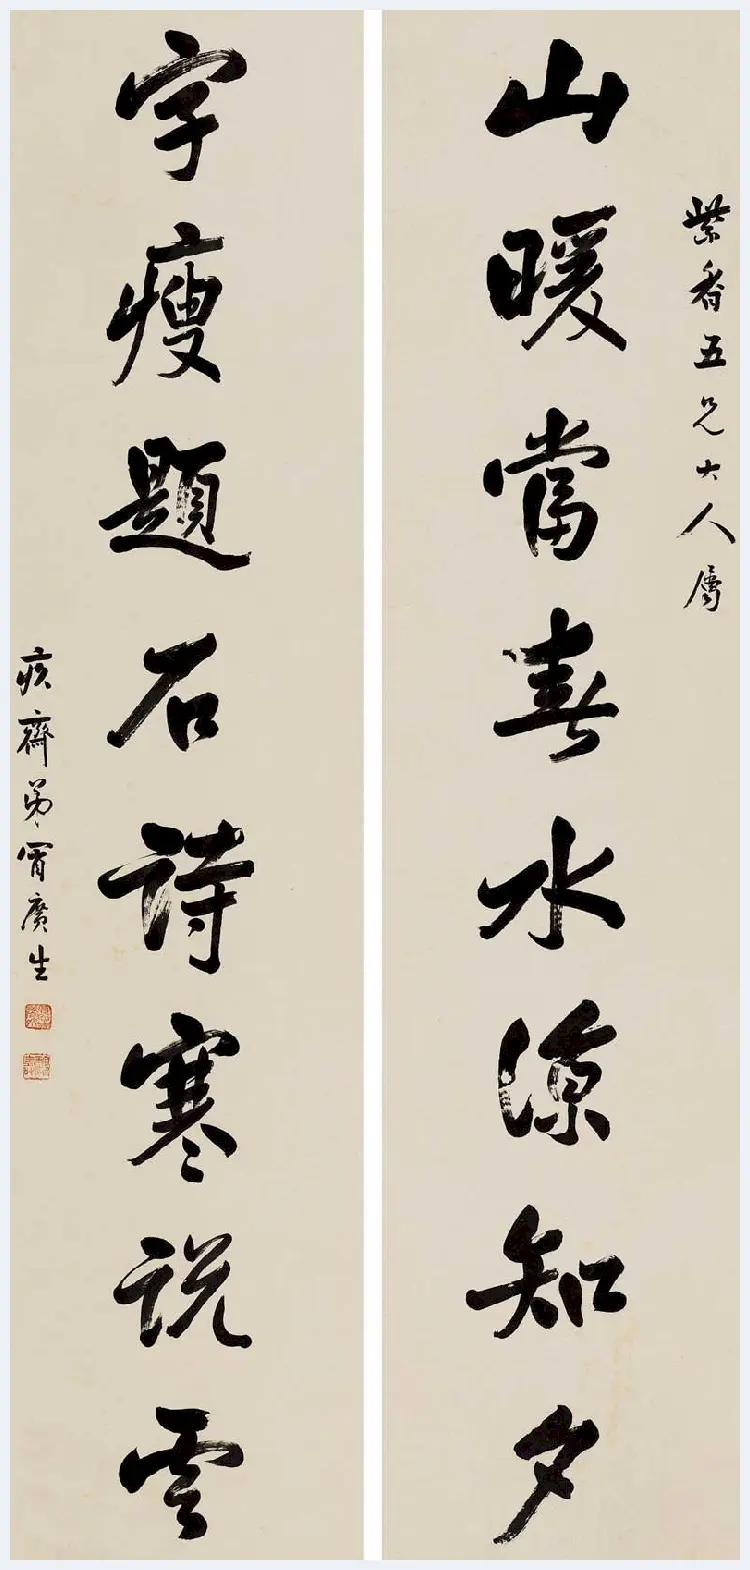 紫香五兄大人属
山暖當春水涼知夕
字瘦題石詩寒說雲
疚齋弟冒廣生